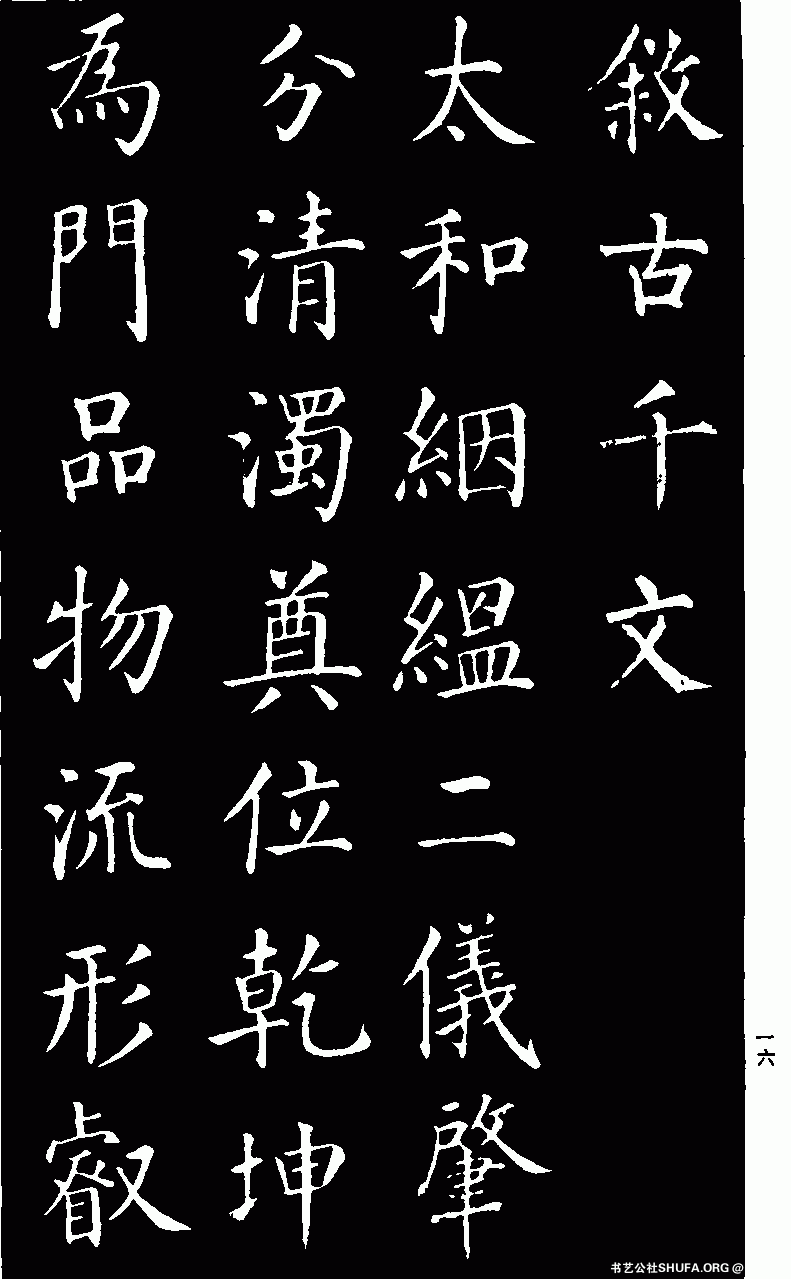 敘古千文
太和絪縕二儀肇
分清濁奠位乾坤
為門品物流形叡
一六
书艺公社SHUFA.ORG @